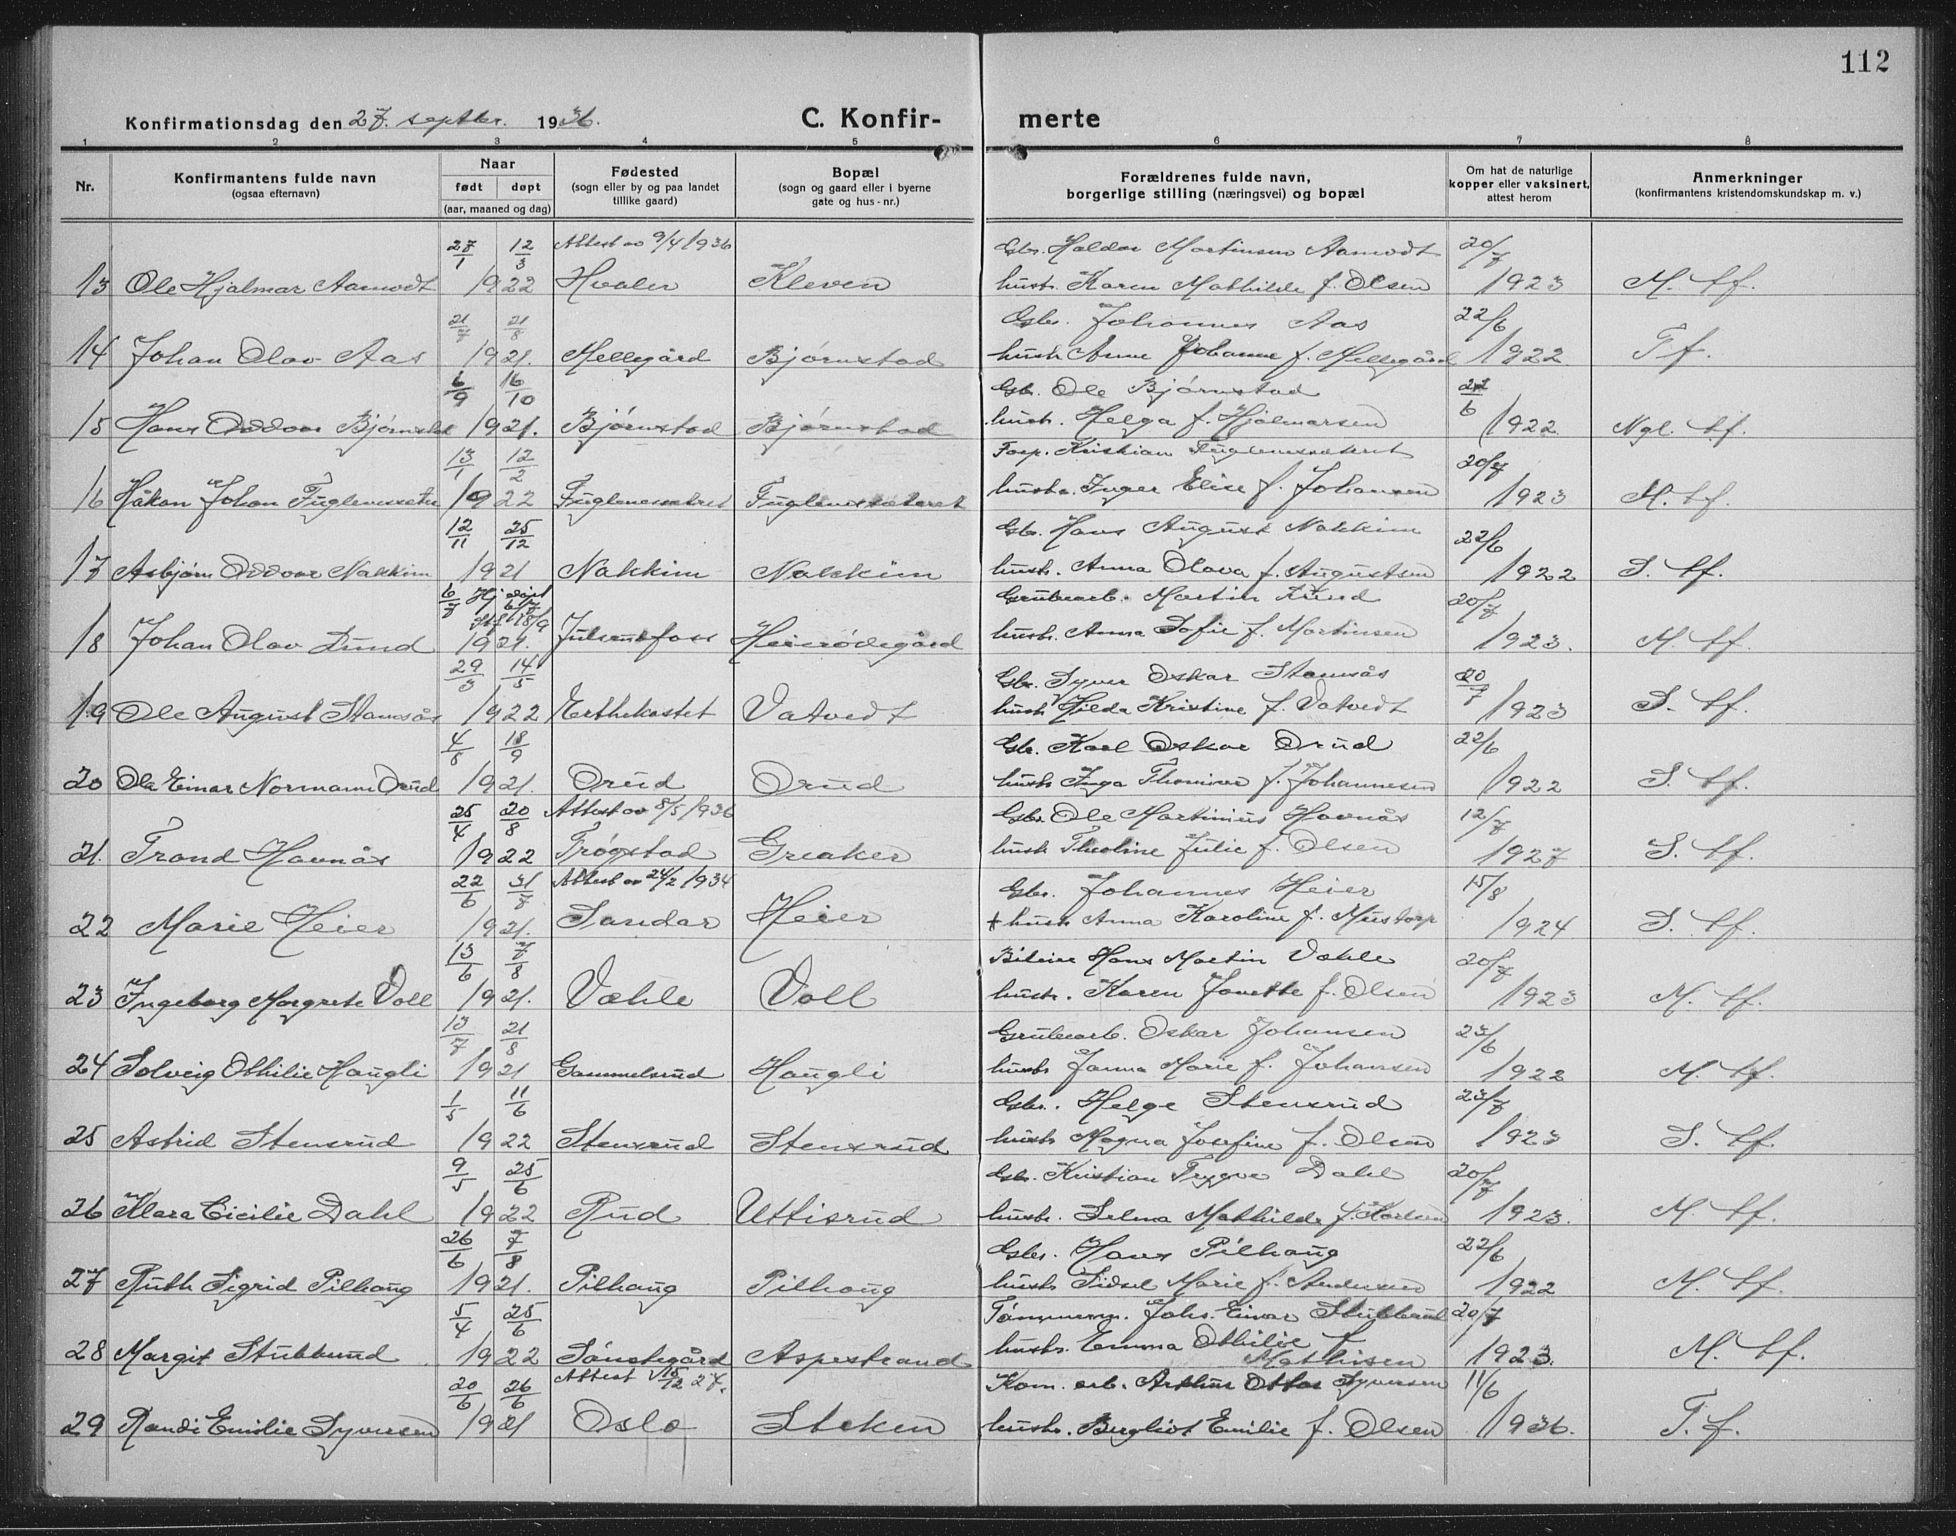 112
Konfirmationsdag den 27. septbr. 1936. C. Konfir- merte
1 2 3 4 5 6 7 8
Nr. Konfirmantens fulde navn (ogsaa efternavn) Naar født døpt (aar, maaned og dag) Fødested (sogn eller by og paa landet tillike gaard) Bopæl (sogn og gaard eller i byerne gate og hus-nr.) Forældrenes fulde navn, borgerlige stilling (næringsvei) og bopæl Om hat de naturlige kopper eller vaksinert, attest herom Anmerkninger (konfirmantens kristendomskundskap m. v.)
27/1 12/3 Attest av 9/4 1936 Gbr. Haldor Martinsen Aamodt 20/7
13 Ole Hjalmar Aamodt 1922 Hvaler Kleven hustr. Karen Mathilde f. Olsen 1923 M. tf.
21/7 21/8 Gbr. Johannes Aas 22/6
14 Johan Olav Aas 1921. Mellegård Bjørnstad hustr. Anne Johanne f. Mellegård 1922 T f.
6/9 16/10 Gbr. Ole Bjørnstad 22/6
15 Hans Oddvar Bjørnstad 1921. Bjørnstad Bjørnstad hustr. Helga f. Hjalmarsen 1922 Ngl. tf.
13/1 12/2 Forp. Kristian Fuglenesseteret 20/7
16 Håkon Johan Fuglenessetre 1922 Fuglenessetret Fuglenesseteret hustr. Inger Elise f. Johansen 1923 M. tf.
12/11 25/12 Gbr. Hans August Nakkim 22/6
17 Asbjørn Oddvar Nakkim 1921 Nakkim Nakkim hustr. Anna Olava f. Augustsen 1922 S. tf.
6/7 Hj døpt 6/7 Grubearb. Martin Lund 20/7
18 Johan Olav Lund 1921. Julsrudfoss Heierødegård hustr. Anna Sofie f. Martinsen 1923. M. tf.
29/3 14/5 Gbr. Syver Oskar Stamsås 20/7
19 Ole August Stamsås 1922 Erthekastet Vatvedt hustr. Hilda Kristine f. Vatvedt 1923 S. tf.
4/8 18/9 Gbr. Karl Oskar Orud 22/6
20 Ole Einar Normann Orud 1921. Orud Orud hustr. Inga Thomine f. Johannesen 1922 S. tf.
25/4 20/8 Attest av 8/5 1936 Gbr. Ole Martinius Havnås 12/7
21. Trond Havnås 1922 Trøgstad Greaker hustr. Theoline Julie f. Olsen 1927 S. tf.
22/6 31/7 Attest av 24/2 1934 Gbr. Johannes Heier 15/8
22 Marie Heier 1921. Sandar Heier + hustr. Anna Karoline f. Mustorp 1924 S. tf.
13/6 7/8 Bileier Hans Martin Vahle 20/7
23 Ingeborg Margrete Voll 1921. Vahle Voll hustr. Karen Janette f. Olsen 1923 M. tf.
13/7 21/8 Grubearb. Oskar Johansen 23/6
24 Solveig Othilie Haugli 1921 Gammelsrud Haugli hustr. Janna Marie f. Johansen 1922 M. tf.
1/5 11/6 Gbr. Helge Stensrud 23/7
25 Astrid Stensrud 1922 Stensrud Stensrud hustr. Magna Josefine f. Olsen 1923 S. tf.
9/5 25/6 Gbr. Kristian Trygve Dahl 20/7
26 Klara Cicilie Dahl 1922 Rud Uttisrud hustr. Selma Mathilde f. Karlsen 1923. M. tf.
26/6 7/8 Gbr. Hans Pilhaug 22/6
27 Ruth Sigrid Pilhaug 1921. Pilhaug Pilhaug hustr. Sidsel Marie f. Andersen 1922 M. tf.
5/4 25/6 Tømmerm. Johs. Einar Stubberud 20/7
28 Margit Stubberud 1922 Sønstegård Aspestrand hustr. Emma Othilie f. Mathisen 1923. M. tf.
20/6 26/6 Attest 15/12 27. Kom. arb. Arthur Ottar Syversen 11/6
29 Randi Emilie Syversen 1921 Oslo Steken hustr. Bergliot Emilie f. Olsen 1936. T. f.